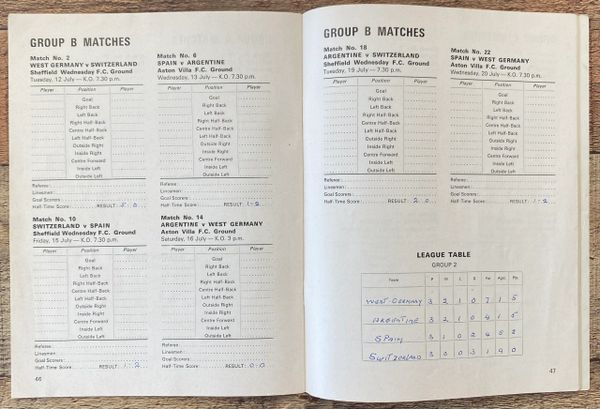 GROUP B MATCHES
Match No. 2
WEST GERMANY v SWITZERLAND
Sheffield Wednesday F.C. Ground
Tuesday, 12 July — K.O. 7.30 p.m.
Player Position Player
Goal
Right Back
Left Back
Right Half-Back
Centre Half-Back
Left Half-Back
Outside Right
Inside Right
Centre Forward
Inside Left
Outside Left
Referee :
Linesmen :
Goal Scorers :
Half-Time Score : RESULT: 5-0
Match No. 6
SPAIN v ARGENTINE
Aston Villa F.C. Ground
Wednesday, 13 July — K.O. 7.30 p.m.
Player Position Player
Goal
Right Back
Left Back
Right Half-Back
Centre Half-Back
Left Half-Back
Outside Right
Inside Right
Centre Forward
Inside Left
Outside Left
Referee :
Linesmen :
Goal Scorers :
Half-Time Score : RESULT: 1-2
Match No. 10
SWITZERLAND v SPAIN
Sheffield Wednesday F.C. Ground
Friday, 15 July — K.O. 7.30 p.m.
Player Position Player
Goal
Right Back
Left Back
Right Half-Back
Centre Half-Back
Left Half-Back
Outside Right
Inside Right
Centre Forward
Inside Left
Outside Left
Referee :
Linesmen :
Goal Scorers :
Half-Time Score : RESULT: 1-2
Match No. 14
ARGENTINE v WEST GERMANY
Aston Villa F.C. Ground
Saturday, 16 July — K.O. 3 p.m.
Player Position Player
Goal
Right Back
Left Back
Right Half-Back
Centre Half-Back
Left Half-Back
Outside Right
Inside Right
Centre Forward
Inside Left
Outside Left
Referee :
Linesmen :
Goal Scorers :
Half-Time Score : RESULT: 0-0
46
GROUP B MATCHES
Match No. 18
ARGENTINE v SWITZERLAND
Sheffield Wednesday F.C. Ground
Tuesday, 19 July — K.O. 7.30 p.m.
Player Position Player
Goal
Right Back
Left Back
Right Half-Back
Centre Half-Back
Left Half-Back
Outside Right
Inside Right
Centre Forward
Inside Left
Outside Left
Referee :
Linesmen :
Goal Scorers :
Half-Time Score : RESULT: 2 0
Match No. 22
SPAIN v WEST GERMANY
Aston Villa F.C. Ground
Wednesday, 20 July — K.O. 7.30 p.m.
Player Position Player
Goal
Right Back
Left Back
Right Half-Back
Centre Half-Back
Left Half-Back
Outside Right
Inside Right
Centre Forward
Inside Left
Outside Left
Referee :
Linesmen :
Goal Scorers :
Half-Time Score : RESULT: 1-2
LEAGUE TABLE
GROUP 2
Team P W L D For Agst. Pts.
WEST GERMANY 3 2 1 0 7 1 5
ARGENTINE 3 2 1 0 4 1 5
SPAIN 3 1 0 2 4 5 2
SWITZERLAND 3 0 0 3 1 9 0
47